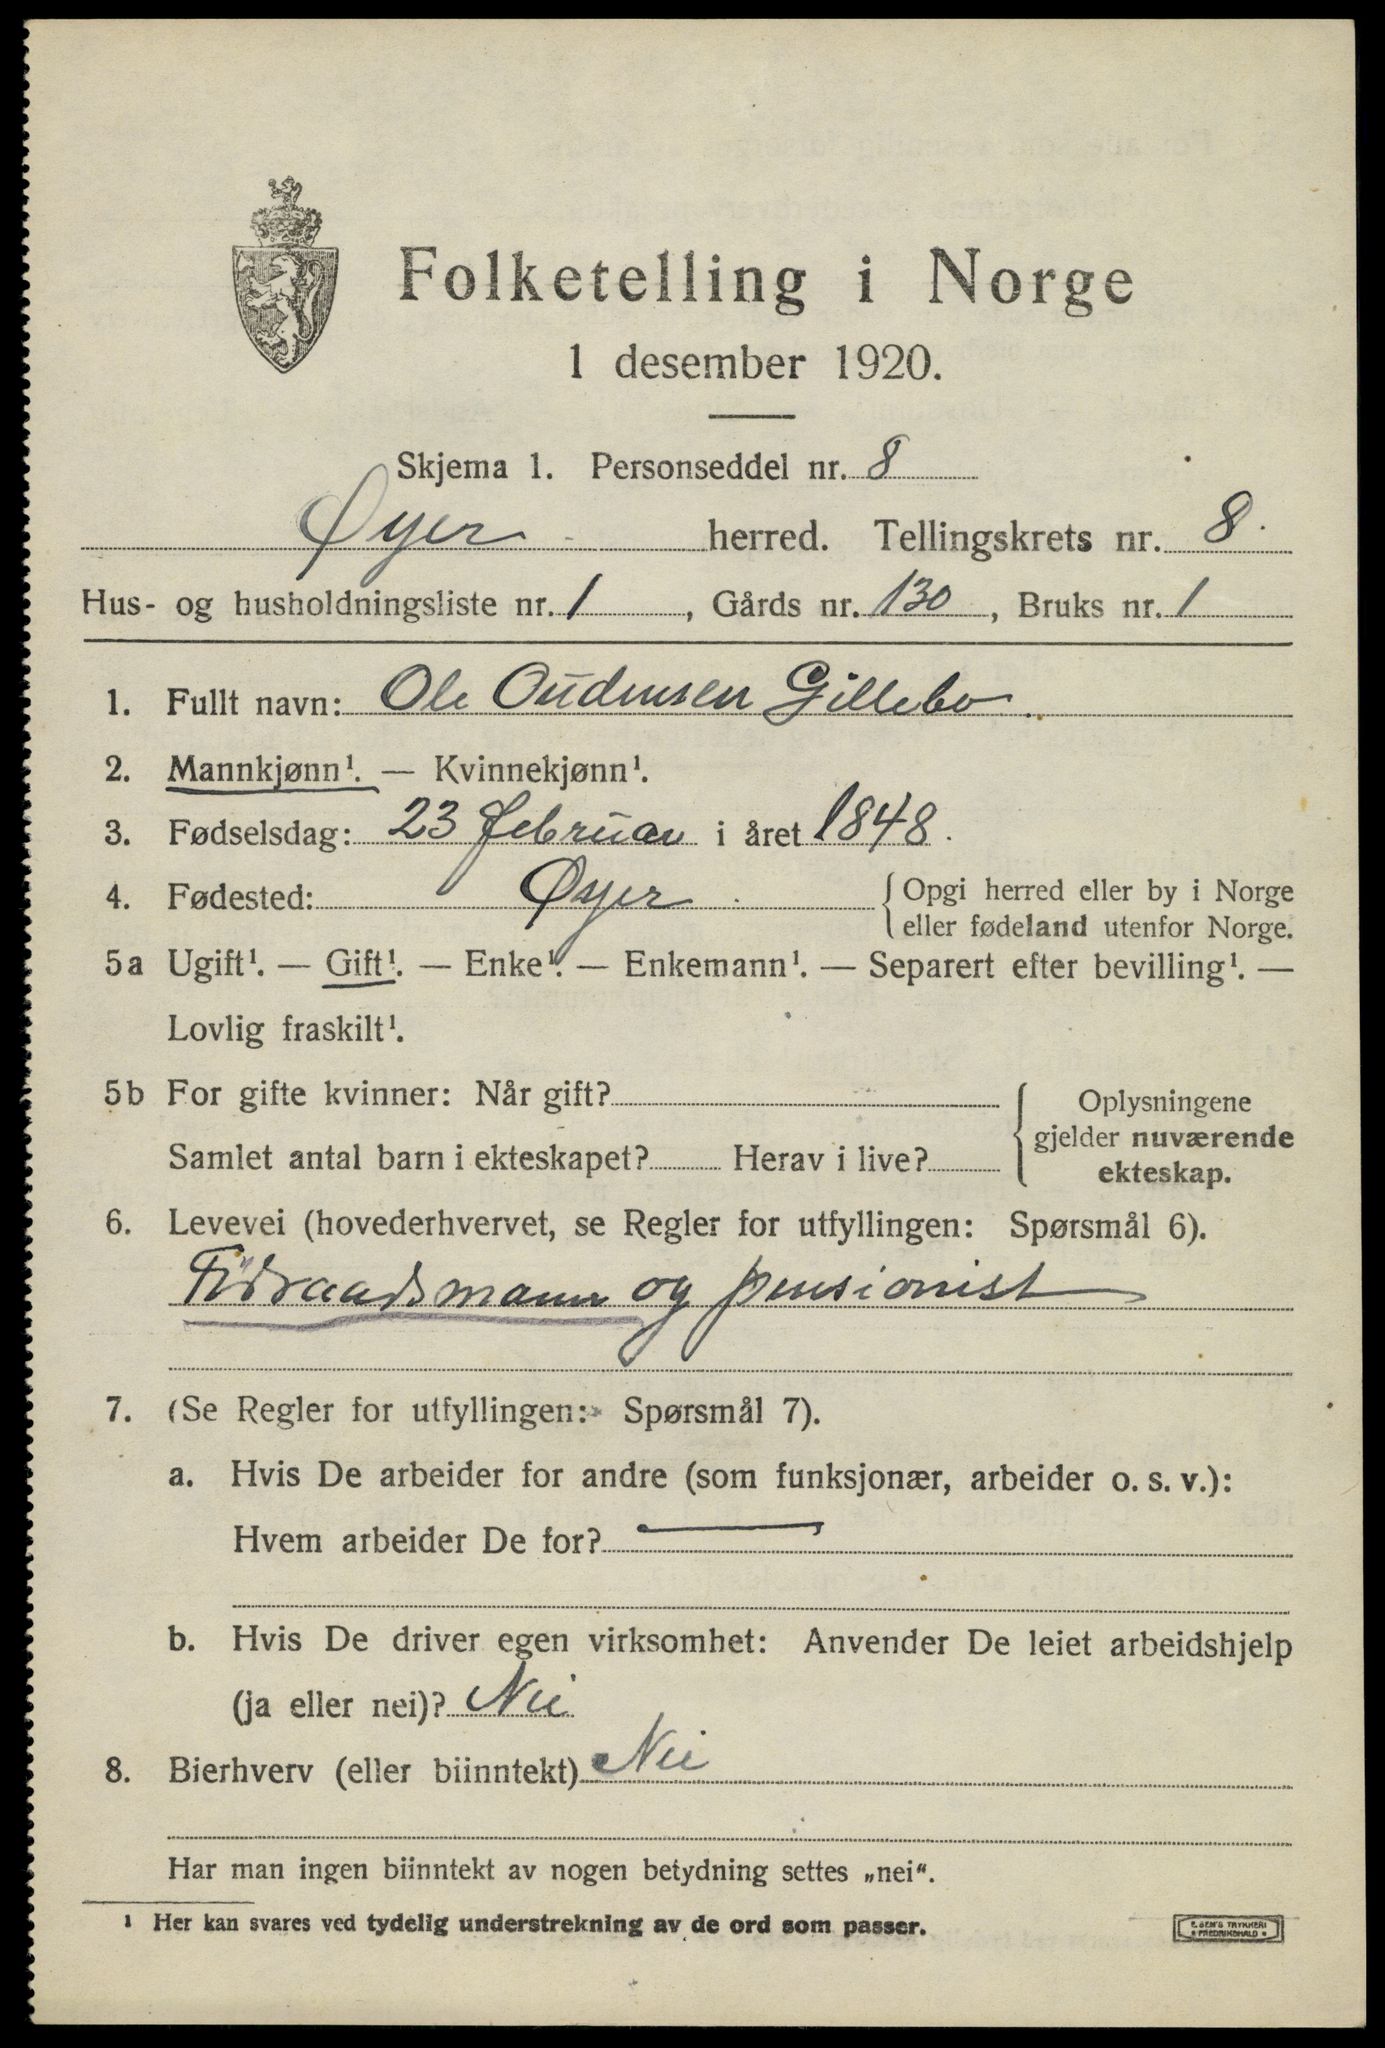 Folketelling i Norge
1 desember 1920.
Skjema 1. Personseddel nr. 8
Øyer herred. Tellingskrets nr. 8.
Hus- og husholdningsliste nr. 1, Gårds nr. 130, Bruks nr. 1
1. Fullt navn: Ole Oudensen Gillebo.
2. Mannkjønn¹. — Kvinnekjønn¹.
3. Fødselsdag: 23 februar i året 1848.
4. Fødested: Øyer. { Opgi herred eller by i Norge
eller fødeland utenfor Norge.
5a Ugift¹. — Gift¹. — Enke¹. — Enkemann¹. — Separert efter bevilling¹. —
Lovlig fraskilt¹.
5b For gifte kvinner: Når gift?
Samlet antal barn i ekteskapet? Herav i live?
{ Oplysningene
gjelder nuværende
ekteskap.
6. Levevei (hovederhvervet, se Regler for utfyllingen: Spørsmål 6).
Födraadsmann og pensionist
7. (Se Regler for utfyllingen: Spørsmål 7).
a. Hvis De arbeider for andre (som funksjonær, arbeider o. s. v.):
Hvem arbeider De for? —
b. Hvis De driver egen virksomhet: Anvender De leiet arbeidshjelp
(ja eller nei)? Nei
8. Bierhverv (eller biinntekt) Nei
Har man ingen biinntekt av nogen betydning settes „nei“.
¹ Her kan svares ved tydelig understrekning av de ord som passer.
E. SEM'S TRYKKERI
* FREDRIKSHALD *